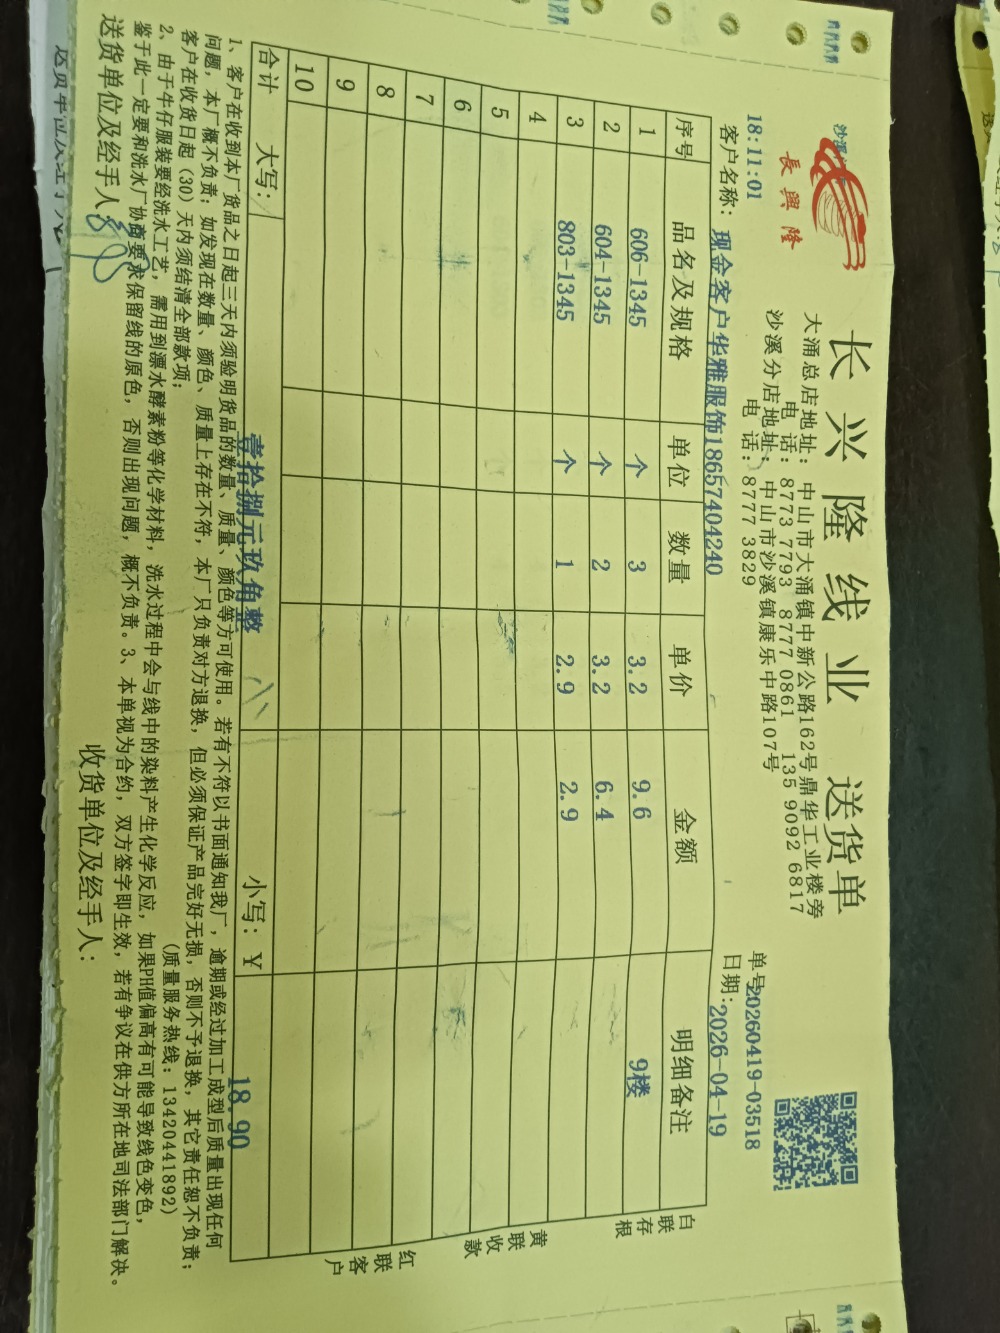 长兴隆线业 送货单
長興隆
大涌总店地址：中山市大涌镇中新公路162号鼎华工业楼旁
电 话：8773 7793 8777 0861 135 9092 6817
沙溪分店地址：中山市沙溪镇康乐中路107号
电 话：8777 3829
18:11:01
单号20260419-03518
客户名称：现金客户华雅服饰18657404240
日期：2026-04-19
序号 品名及规格 单位 数量 单价 金额 明细备注
1 606-1345 个 3 3.2 9.6 9楼
2 604-1345 个 2 3.2 6.4
3 803-1345 个 1 2.9 2.9
4
5
6
7
8
9
10
合计 大写：壹拾捌元玖角整 小写：￥ 18.90
白联存根
黄联收款
红联客户
1、客户在收到本厂货品之日起三天内须验明货品的数量、质量、颜色等方可使用。若有不符以书面通知我厂，逾期或经过加工成型后质量出现任何
问题，本厂概不负责；如发现在数量、颜色、质量上存在不符，本厂只负责对方退换，但必须保证产品完好无损，否则不予退换，其它责任恕不负责；
客户在收货日起（30）天内须结清全部款项；
（质量服务热线：13420441892）
2、由于牛仔服装要经洗水工艺，需用到漂水酵素粉等化学材料，洗水过程中会与线中的染料产生化学反应，如果PH值偏高有可能导致线色变色，
鉴于此一定要和洗水厂协商要求保留线的原色，否则出现问题，概不负责。3、本单视为合约，双方签字即生效，若有争议在供方所在地司法部门解决。
送货单位及经手人：
收货单位及经手人：